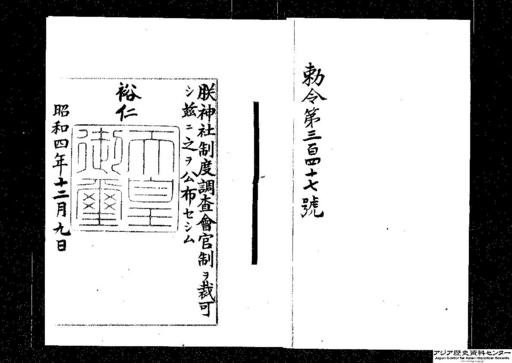 勅令第三百四十七號
朕神社制度調査會官制ヲ裁可
シ茲ニ之ヲ公布セシム
裕仁
天皇
御璽
昭和四年十二月九日
アジア歴史資料センター
Japan Center for Asian Historical Records